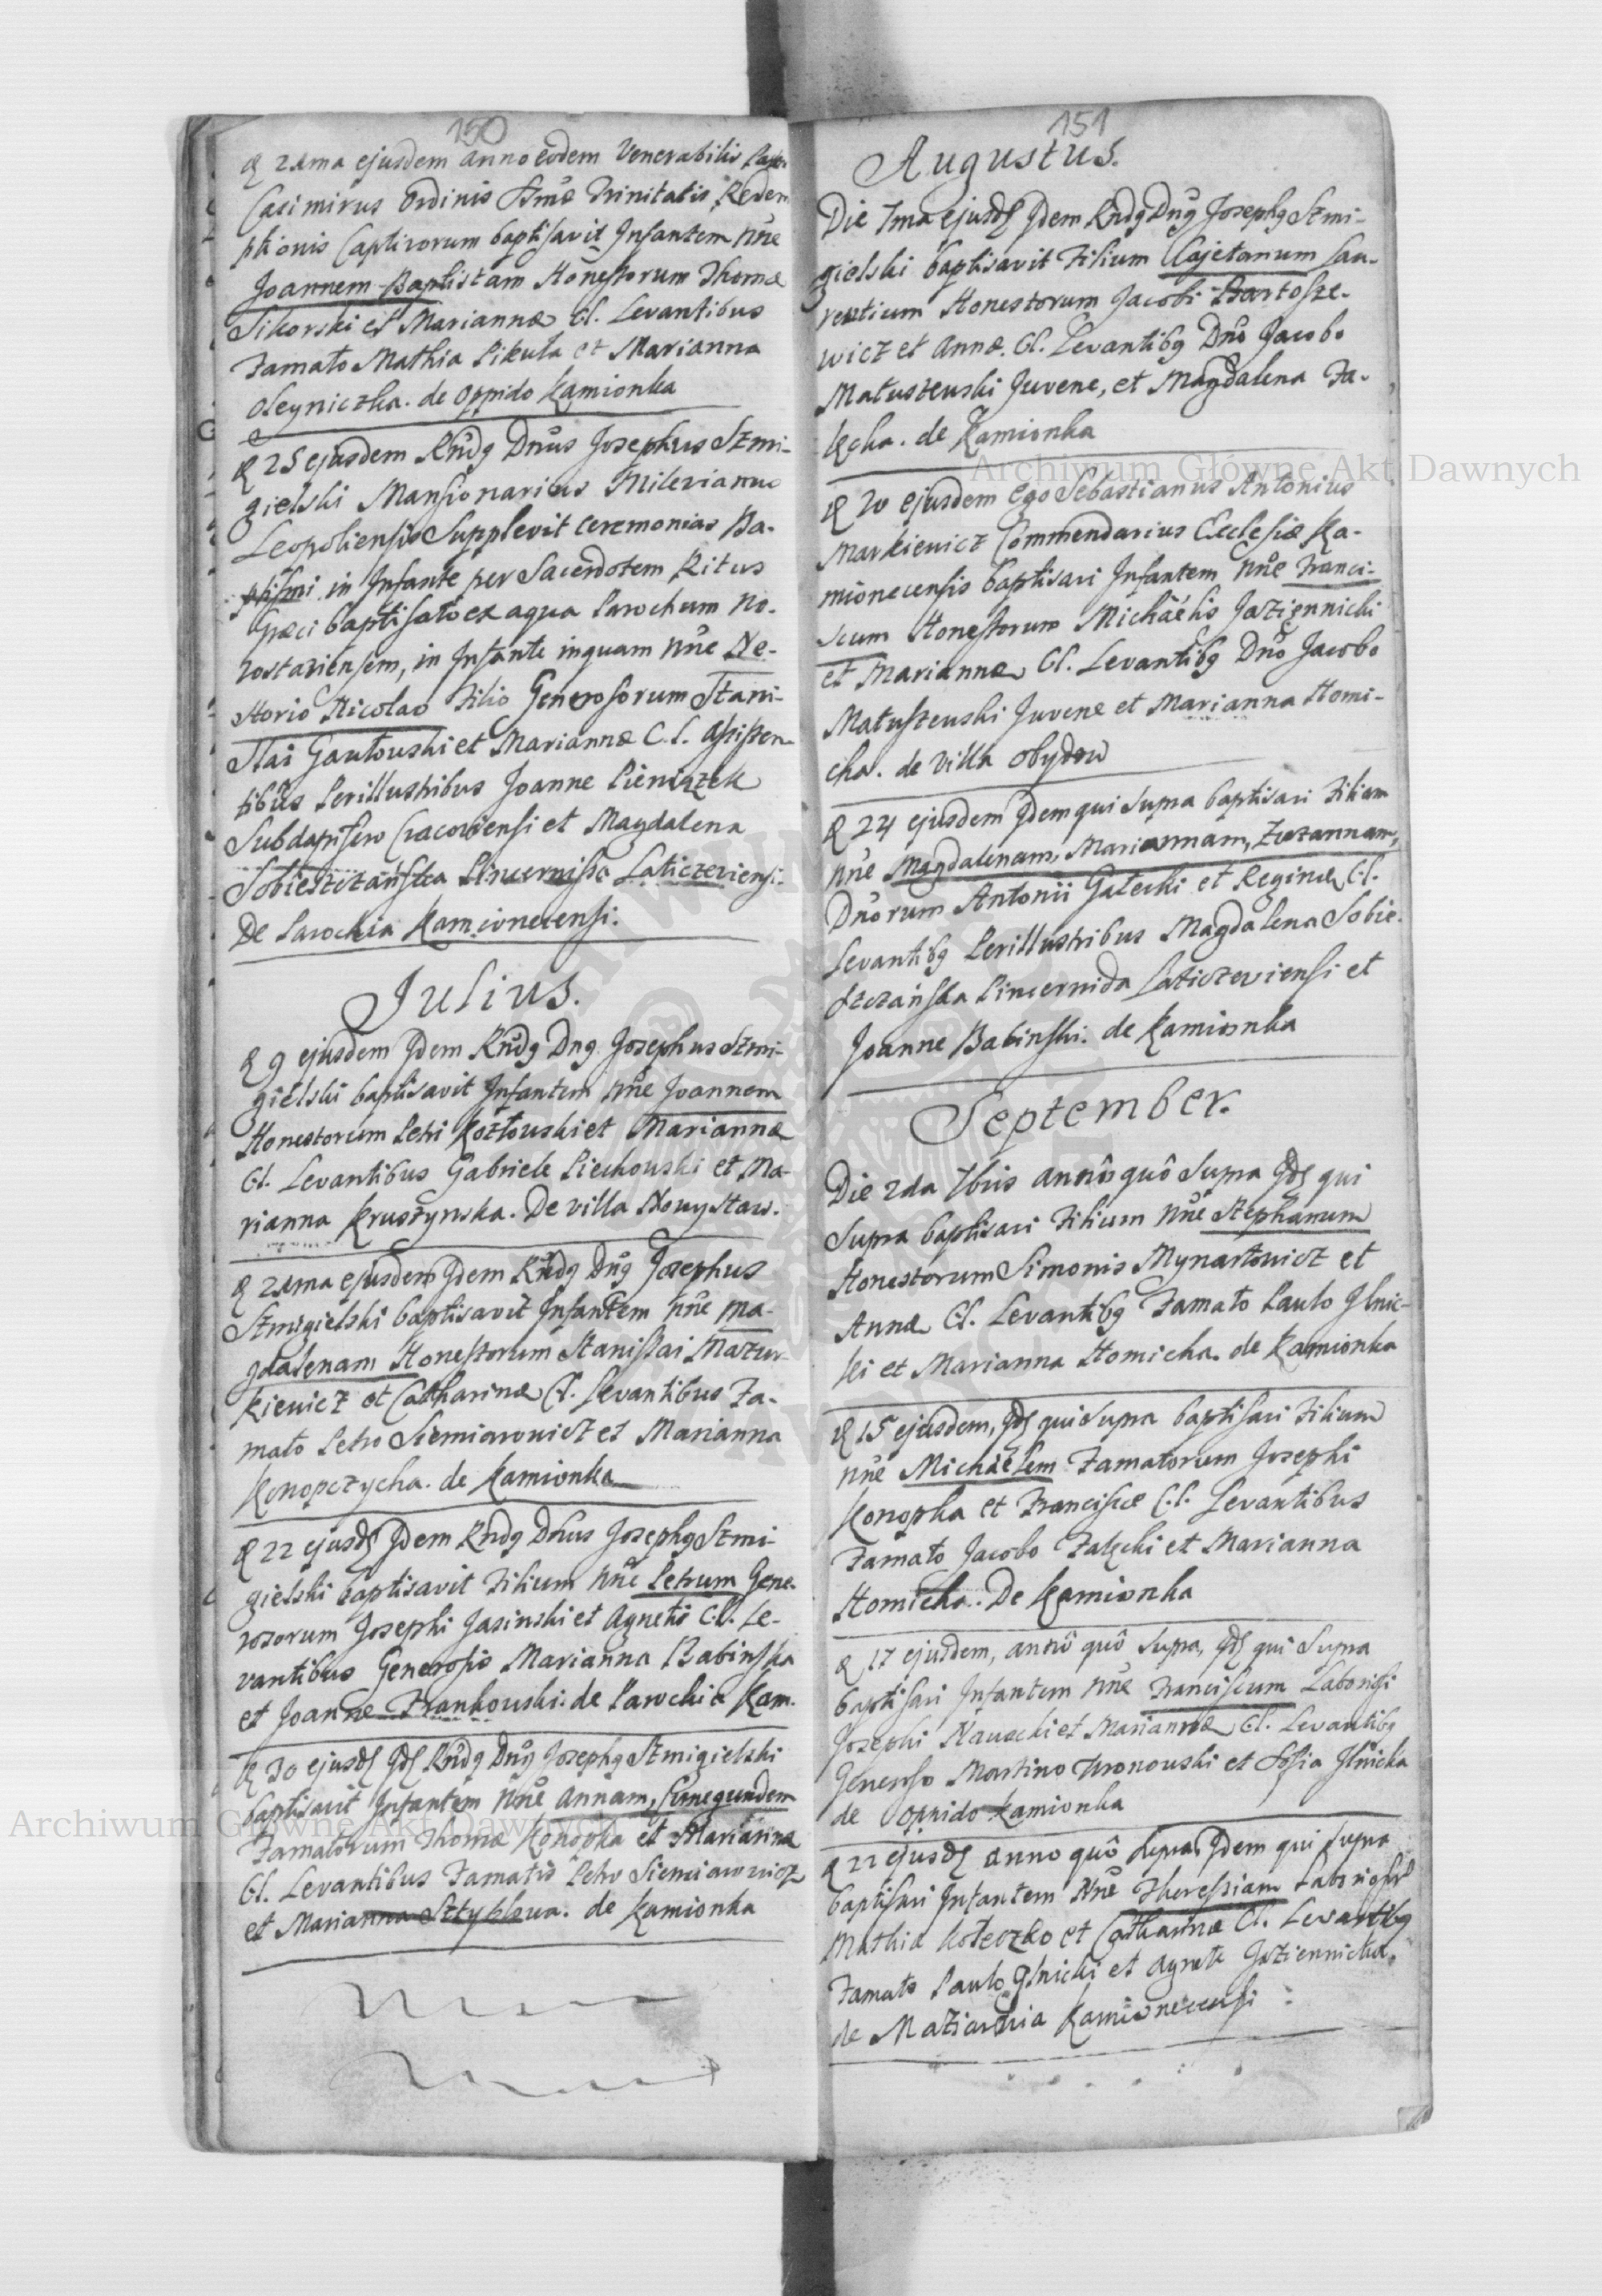 150
& 24ma ejusdem anno eodem Venerabilis Pater
Casimirus Ordinis SSmæ Trinitatis Redem
ptionis Captivorum baptisavit Infantem nne
Joannem-Baptistam Honestorum Thomæ
Sikorski et Mariannæ C.L. Levantibus
Famato Mathia Pikuła et Marianna
Oleyniczka. de Oppido Kamionka
& 25 ejusdem Rndg Dnus Josephus Szmi-
gielski Mansionarius Milevianus
Leopoliensis Supplevit ceremonias Ba-
ptismi in Infante per Sacerdotem Ritus
Græci baptisato ex aqua Parochum No-
vostaviensem, in Infante inquam nne Ne-
storio Nicolao Filio Generosorum Stani-
slai Gawłowski et Mariannæ C.L. Assisten-
tibus Perillustribus Joanne Pieniązek
Subdapifero Cracoviensi et Magdalena
Sobiesczańska Pincernissa Laticzeviensi.
De Parochia Kamionecensi.
Julius.
& 9 ejusdem Idem Rndg Dng Josephus Szmi-
gielski baptisavit Infantem nne Joannem
Honestorum Petri Kozłowski et Mariannæ
C.L. Levantibus Gabriele Piechowski et Ma-
rianna Kruszynska. De villa Nowystaw.
& 21ma ejusdem Idem Rndg Dng Josephus
Szmigielski baptisavit Infantem nne Ma-
gdalenam Honestorum Stanislai Mazur-
kiewicz et Catharinæ C.L. Levantibus Fa-
mato Petro Siemiarowicz et Marianna
Konopczycha. de Kamionka
& 22 ejusd Idem Rndg Dnus Josephg Szmi-
gielski baptisavit Filium nne Petrum Gene-
rosorum Josephi Jasinski et Agnetis C.L. Le-
vantibus Generosis Marianna Babinska
et Joanne Frankowski. de Parochia Kam.
& 30 ejusd Id Rndg Dng Josephg Szmigielski
baptisavit Infantem nne Annam, Cunegundem
Famatorum Thomæ Konopka et Mariannæ
C.L. Levantibus Famatis Petro Siemiarowicz
et Marianna Sztykowa. de Kamionka
151
Augustus.
Die 7ma ejusd Idem Rndg Dng Josephg Szmi-
gielski baptisavit Filium Cajetanum Lau-
rentium Honestorum Jacobi Bartosze-
wicz et Annæ. C.L. Levantibg Dno Jacobo
Matuszewski Juvene, et Magdalena Fa-
łęcka. de Kamionka
& 20 ejusdem Ego Sebastianus Antonius
Markiewicz Commendarius Ecclesiæ Ka-
mionecensis baptisavi Infantem nne Franci-
scum Honestorum Michaëlis Jaziennicki
et Mariannæ C.L. Levantibg Dno Jacobo
Matuszewski Juvene et Marianna Homi-
cka. de Villa Obydow
& 24 ejusdem Idem qui Supra baptisavi Filiam
nne Magdalenam, Mariannam, Zuzannam,
Dnorum Antonii Gałecki et Reginæ C.L.
Levantibg Perillustribus Magdalena Sobie-
szczańska Pincernida Laticzeviensi et
Joanne Babinski. de Kamionka
September.
Die 2da 7bris annô quô Supra Id qui
Supra baptisavi Filium nne Stephanum
Honestorum Simonis Mynartowicz et
Annæ C.L. Levantibg Famato Paulo Ilnic-
ki et Marianna Homicka. de Kamionka
& 15 ejusdem, Id qui Supra baptisavi Filium
nne Michaëlem Famatorum Josephi
Konopka et Franciscæ C.L. Levantibus
Famato Jacobo Fałęcki et Marianna
Homicka. De Kamionka
& 17 ejusdem, annô quô Supra, Id qui Supra
baptisavi Infantem nne Franciscum Laboriosi
Josephi Nawocki et Mariannæ C.L. Levantibg
Generoso Martino Wronowski et Sofia Ilnicka
de Oppido Kamionka
& 22 ejusd anno quô Supra Idem qui Supra
baptisavi Infantem nne Theressiam
Mathiæ Koteczko et Catharinæ C.L. Levantibg
Famato Paulo Ilnicki et Agnete Jaziennicka.
de Maziarnia Kamionecensi
Archiwum Główne Akt Dawnych
Archiwum Główne Akt Dawnych